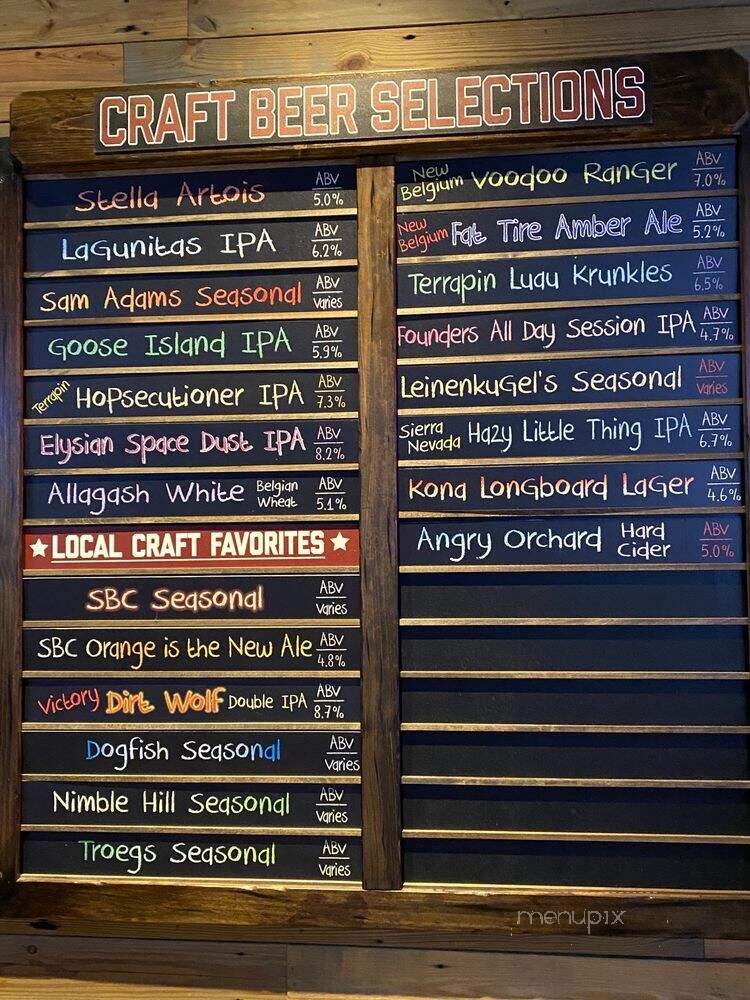 CRAFT BEER SELECTIONS
Stella Artois ABV 5.0%
Lagunitas IPA ABV 6.2%
Sam Adams Seasonal ABV varies
Goose Island IPA ABV 5.9%
Terrapin Hopsecutioner IPA ABV 7.3%
Elysian Space Dust IPA ABV 8.2%
Allagash White Belgian Wheat ABV 5.1%
★ LOCAL CRAFT FAVORITES ★
SBC Seasonal ABV varies
SBC Orange is the New Ale ABV 4.8%
Victory Dirt Wolf Double IPA ABV 8.7%
Dogfish Seasonal ABV varies
Nimble Hill Seasonal ABV varies
Troegs Seasonal ABV varies
New Belgium Voodoo Ranger ABV 7.0%
New Belgium Fat Tire Amber Ale ABV 5.2%
Terrapin Luau Krunkles ABV 6.5%
Founders All Day Session IPA ABV 4.7%
Leinenkugel's Seasonal ABV varies
Sierra Nevada Hazy Little Thing IPA ABV 6.7%
Kona Longboard Lager ABV 4.6%
Angry Orchard Hard Cider ABV 5.0%
menupix